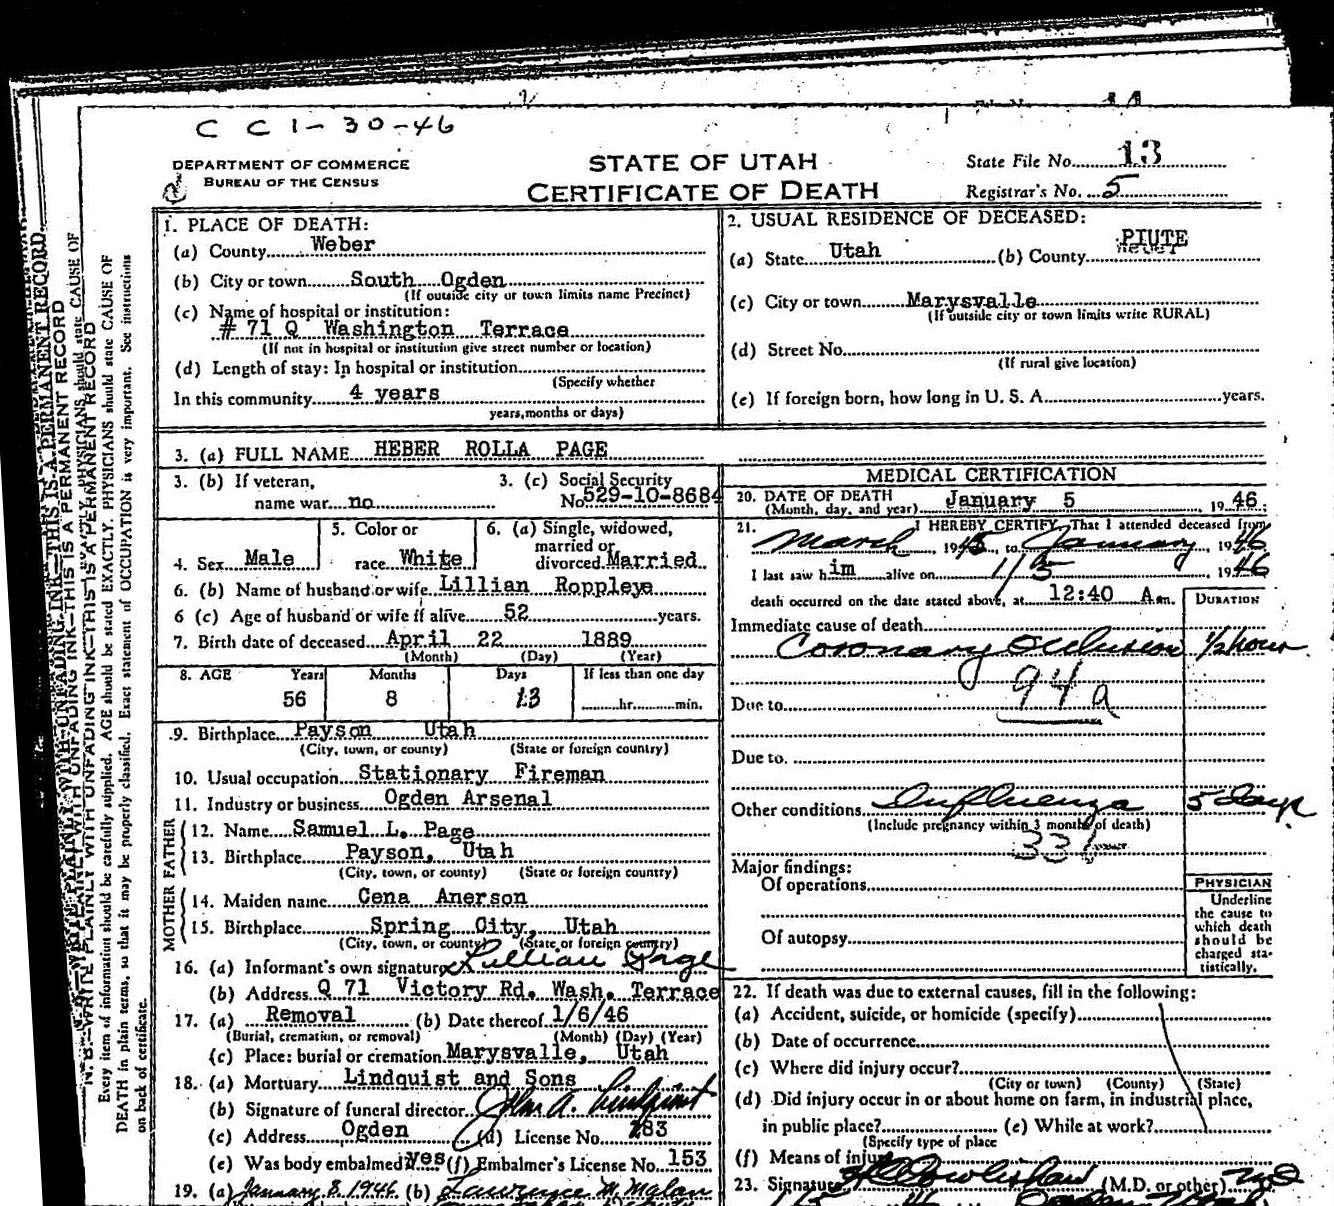 C C 1-30-46
DEPARTMENT OF COMMERCE
BUREAU OF THE CENSUS
STATE OF UTAH
CERTIFICATE OF DEATH
State File No. 13
Registrar's No. 5
1. PLACE OF DEATH:
(a) County Weber
(b) City or town South Ogden
(If outside city or town limits name Precinct)
(c) Name of hospital or institution:
# 71 Q Washington Terrace
(If not in hospital or institution give street number or location)
(d) Length of stay: In hospital or institution
(Specify whether
In this community 4 years
years, months or days)
2. USUAL RESIDENCE OF DECEASED:
(a) State Utah (b) County PIUTE
(c) City or town Marysvalle
(If outside city or town limits write RURAL)
(d) Street No.
(If rural give location)
(e) If foreign born, how long in U. S. A. years.
3. (a) FULL NAME HEBER ROLLA PAGE
3. (b) If veteran,
name war no
3. (c) Social Security
No. 529-10-8684
4. Sex Male
5. Color or
race White
6. (a) Single, widowed,
married or
divorced Married
6. (b) Name of husband or wife Lillian Roppleye
6 (c) Age of husband or wife if alive 52 years.
7. Birth date of deceased April 22 1889
(Month) (Day) (Year)
8. AGE Years Months Days If less than one day
56 8 13 hr. min.
9. Birthplace Payson Utah
(City, town, or county) (State or foreign country)
10. Usual occupation Stationary Fireman
11. Industry or business Ogden Arsenal
FATHER
12. Name Samuel L. Page
13. Birthplace Payson, Utah
(City, town, or county) (State or foreign country)
MOTHER
14. Maiden name Cena Anerson
15. Birthplace Spring City, Utah
(City, town, or county) (State or foreign country)
16. (a) Informant's own signature Lillian Page
(b) Address Q 71 Victory Rd. Wash. Terrace
17. (a) Removal (b) Date thereof 1/6/46
(Burial, cremation, or removal) (Month) (Day) (Year)
(c) Place: burial or cremation Marysvalle, Utah
18. (a) Mortuary Lindquist and Sons
(b) Signature of funeral director John A. Lindquist
(c) Address Ogden (d) License No. 283
(e) Was body embalmed? yes (f) Embalmer's License No. 153
19. (a) January 8, 1946 (b) Lawrence M. Malan
MEDICAL CERTIFICATION
20. DATE OF DEATH January 5 1946
(Month, day, and year)
21. I HEREBY CERTIFY, That I attended deceased from
March, 1945, to January, 1946
I last saw him alive on 1/5 1946
death occurred on the date stated above, at 12:40 A m.
DURATION
Immediate cause of death
Coronary Occlusion 1/2 hour
94a
Due to
Due to.
Other conditions Influenza 5 days
(Include pregnancy within 3 months of death)
33
Major findings:
Of operations
Of autopsy
PHYSICIAN
Underline
the cause to
which death
should be
charged sta-
tistically.
22. If death was due to external causes, fill in the following:
(a) Accident, suicide, or homicide (specify)
(b) Date of occurrence
(c) Where did injury occur?
(City or town) (County) (State)
(d) Did injury occur in or about home on farm, in industrial place,
in public place? (e) While at work?
(Specify type of place
(f) Means of injury
23. Signature (M.D. or other) MD
N. B.—WRITE PLAINLY WITH UNFADING INK—THIS IS A PERMANENT RECORD
Every item of information should be carefully supplied. AGE should be stated EXACTLY. PHYSICIANS should state CAUSE OF
DEATH in plain terms, so that it may be properly classified. Exact statement of OCCUPATION is very important. See instructions
on back of certificate.